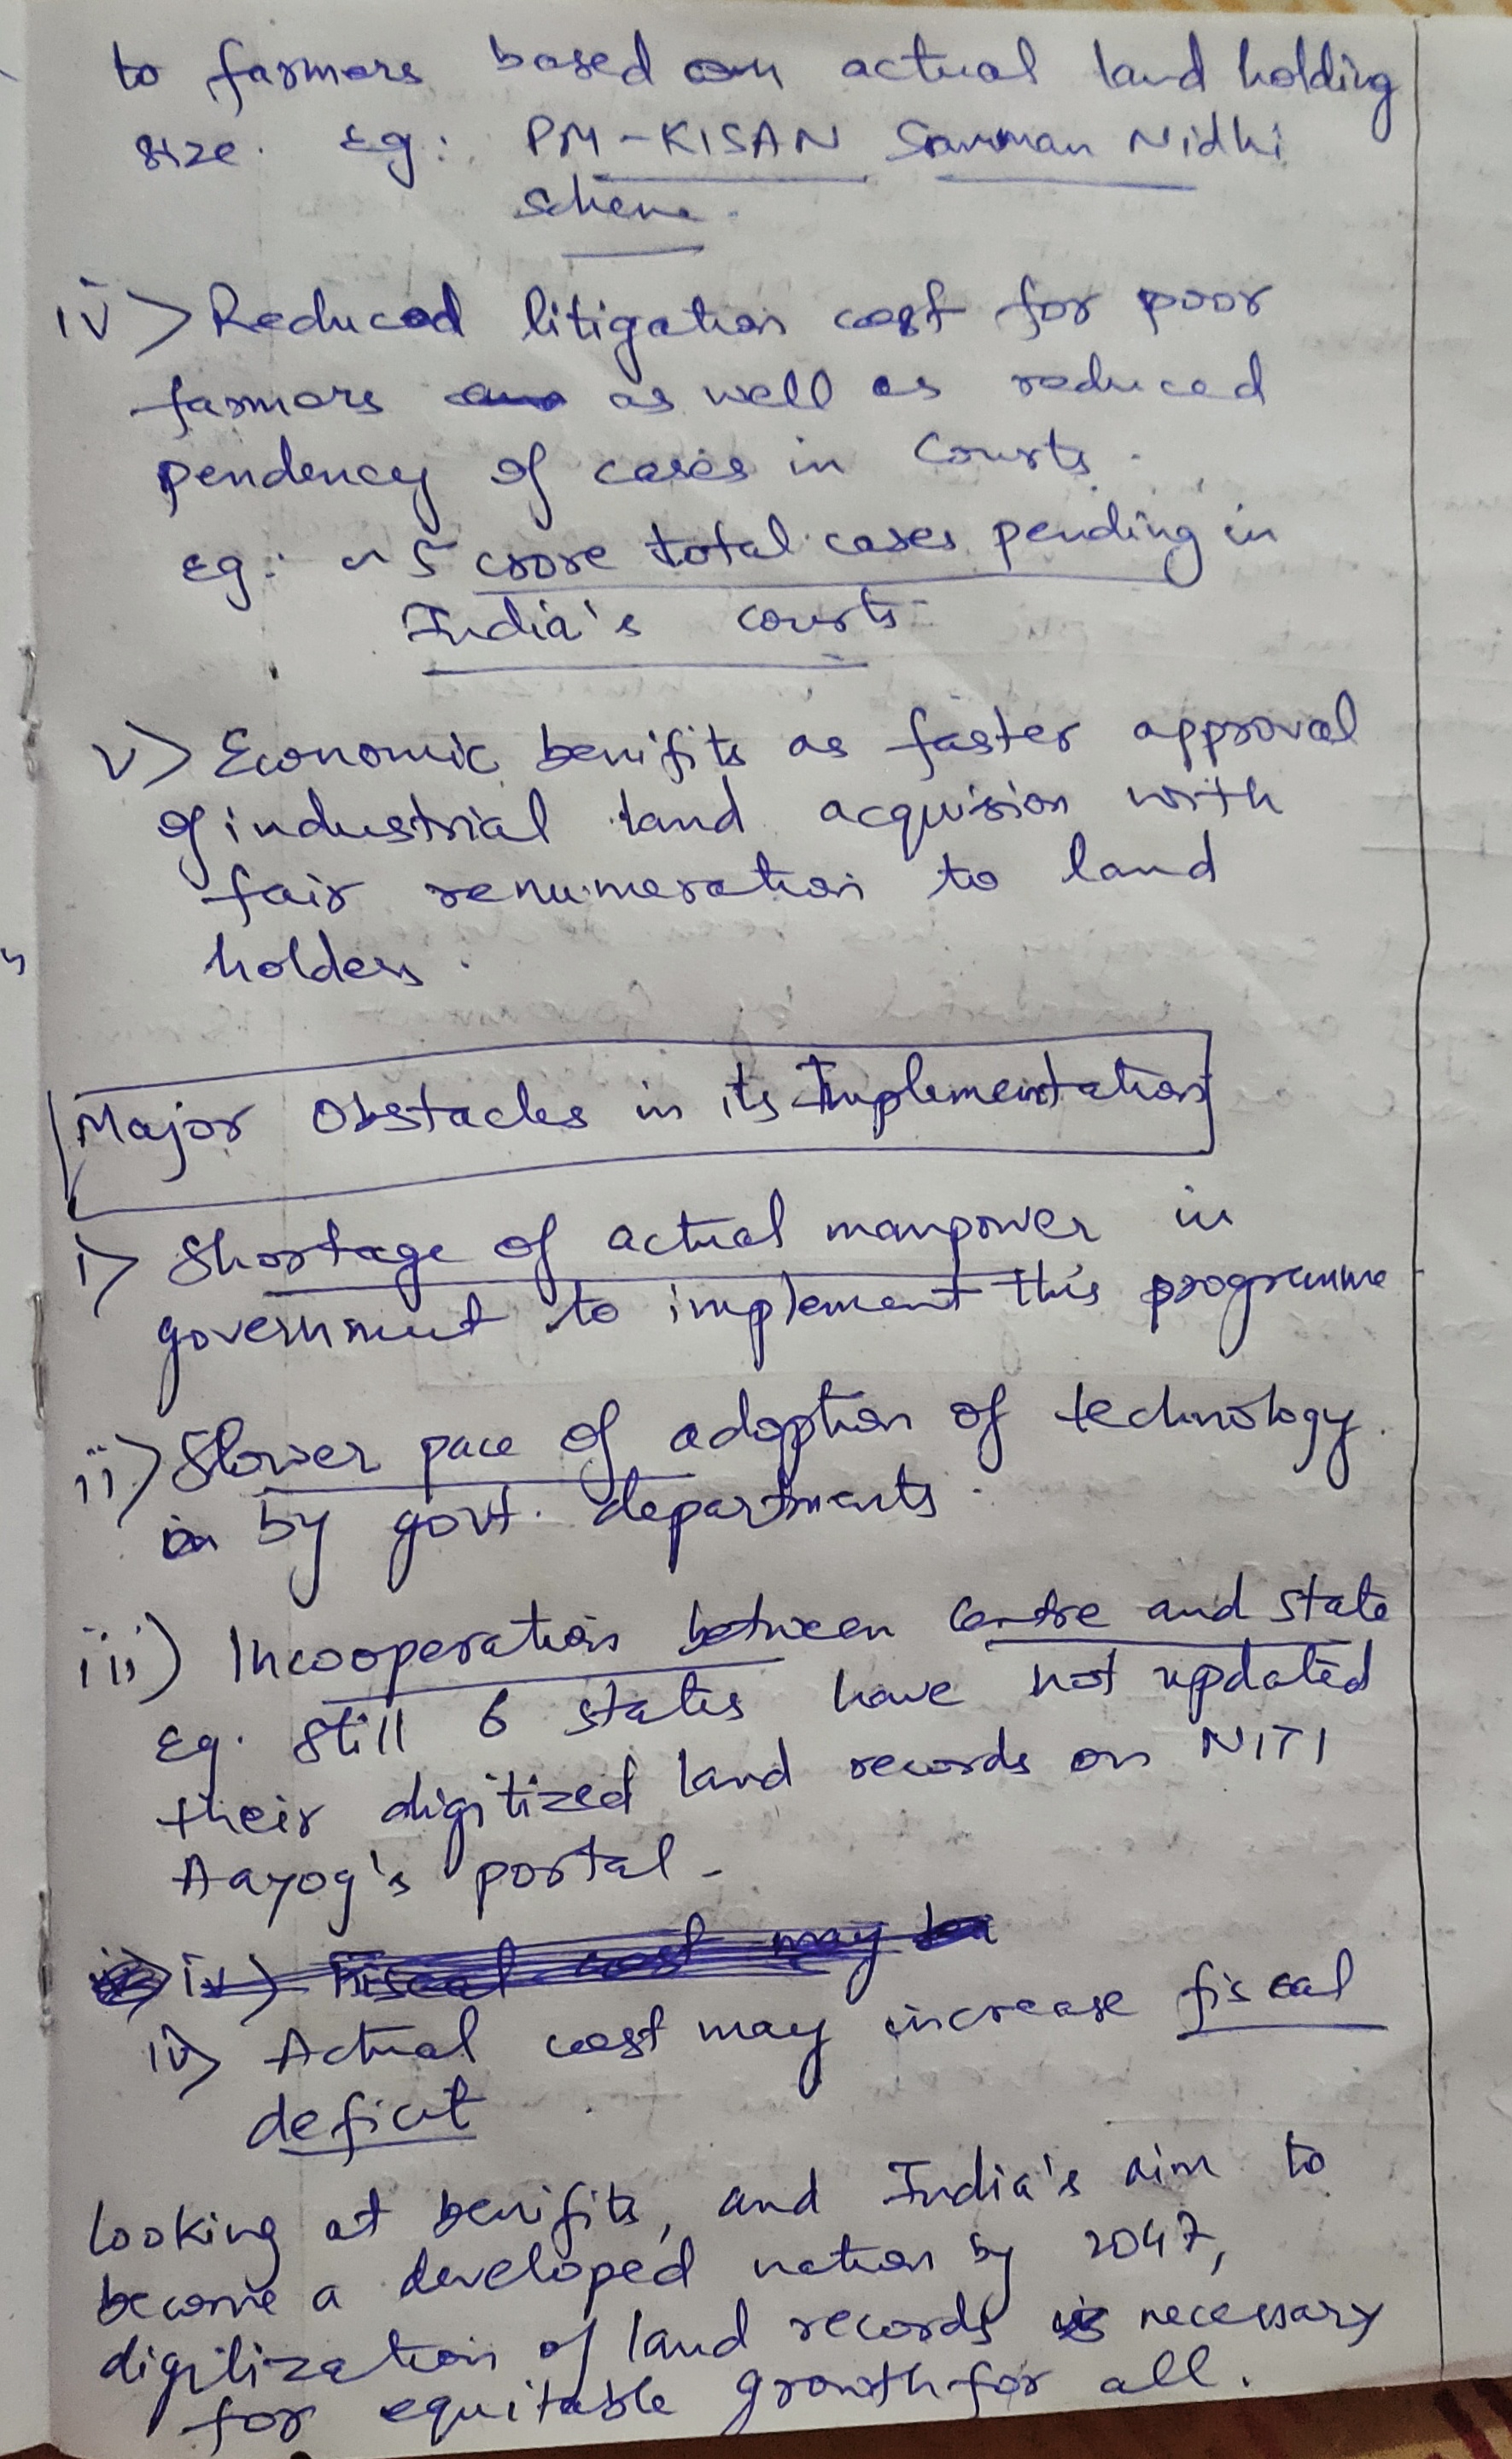 to farmers based on actual land holding
size. Eg: PM-KISAN Samman Nidhi
Scheme.
iv> Reduced litigation cost for poor
farmers as well as reduced
pendency of cases in Courts.
Eg: ~ 5 crore total cases pending in
India's courts.
v> Economic benifits as faster approval
of industrial land acquision with
fair renumeration to land
holders.
Major Obstacles in its Implementation
i> Shortage of actual manpower in
government to implement this programme
ii) Slower pace of adoption of technology.
by govt. departments.
iii) Incooperation between Centre and state
Eg. Still 6 states have not updated
their digitized land records on NITI
Aayog's portal-
iv) Fiscal cost may be
iv> Actual cost may increase fiscal
deficit
looking at benifits, and India's aim to
become a developed nation by 2047,
digitization of land records is necessary
for equitable growth for all.